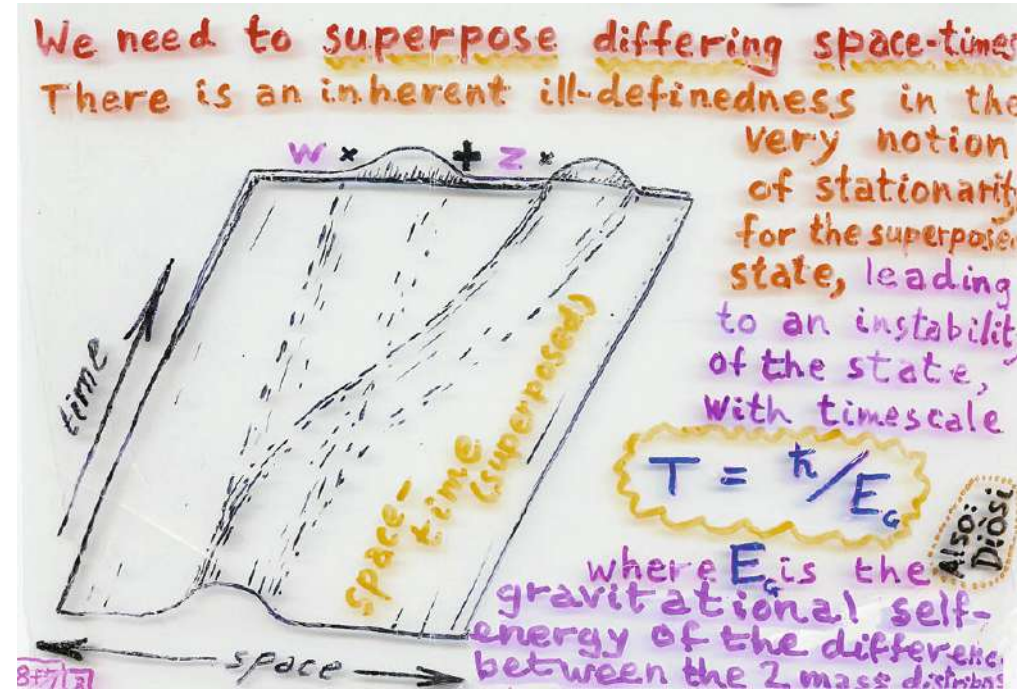 We need to superpose differing space-times
There is an inherent ill-definedness in the
very notion
of stationarit
for the superpose
state, leading
to an instabilit
of the state,
with timescale
w × + z ×
time
space-
time
(superposed)
T = ħ/E_G
Also:
Diósi
where E_G is the
gravitational self-
energy of the differenc
between the 2 mass distribns
space